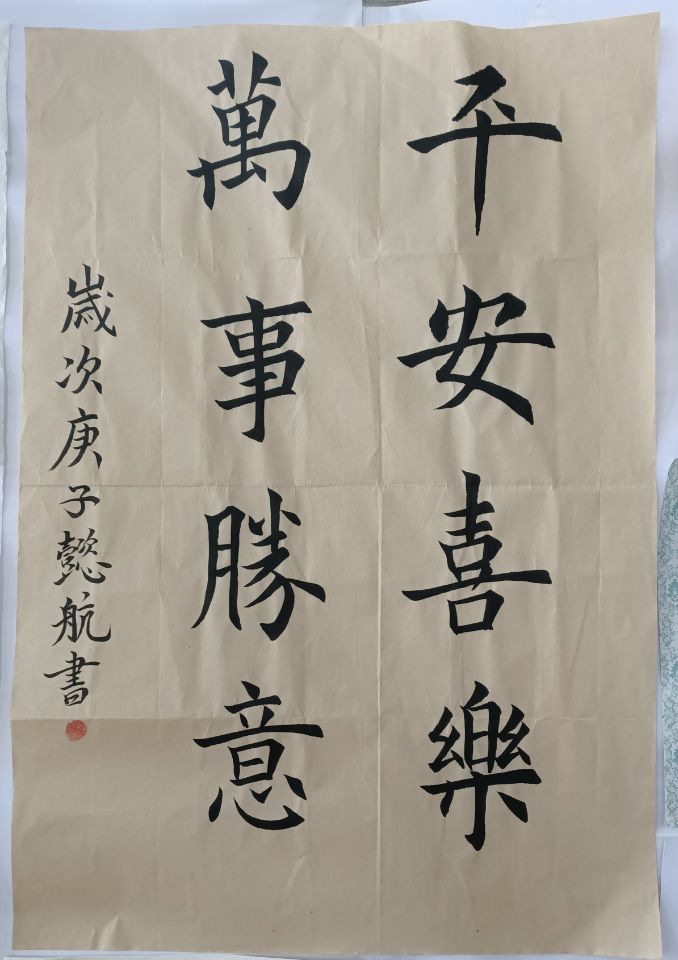 平安喜樂
萬事勝意
歲次庚子懿航書